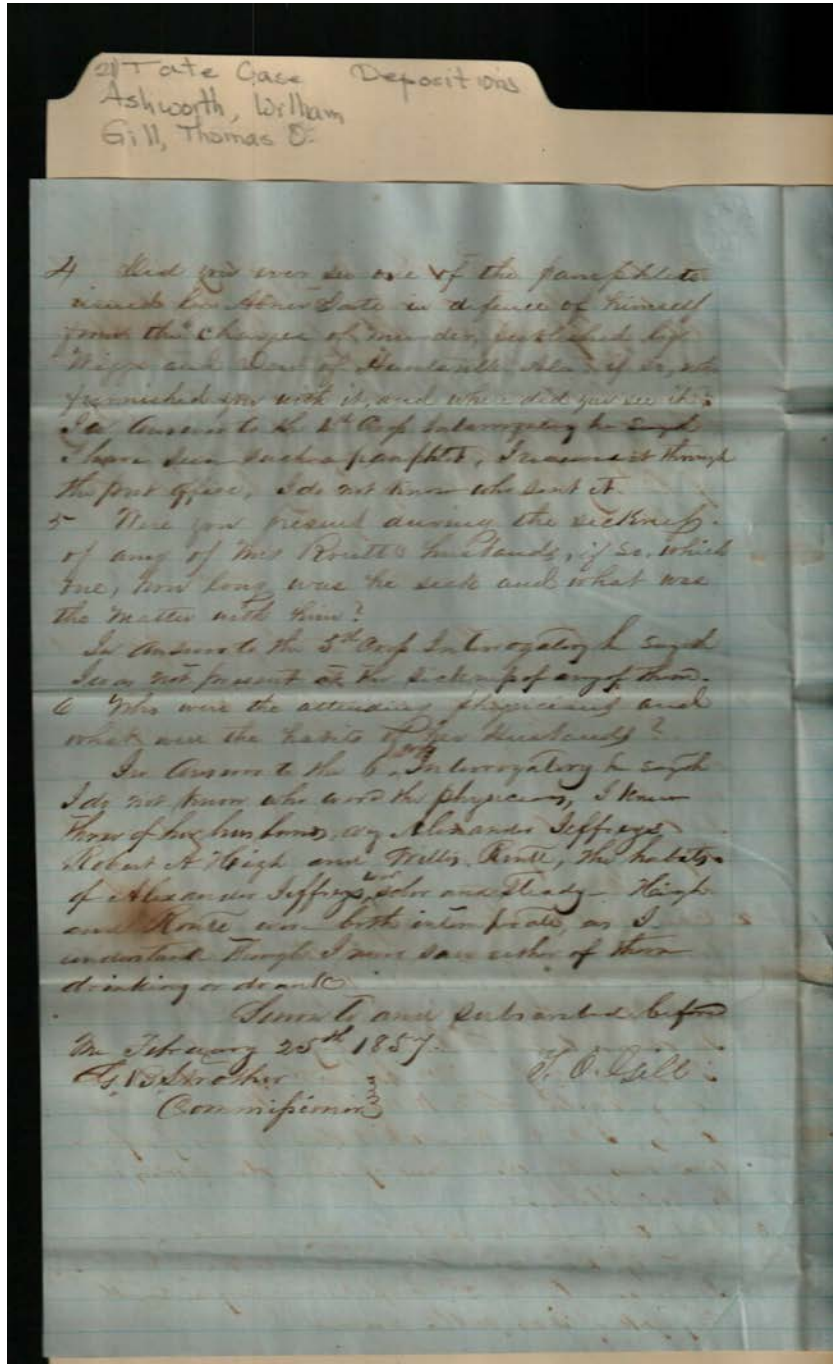 21 Tate Case Depositions
Ashworth, William
Gill, Thomas O.
4 Did you ever see one of the pamphlets
issued by Abner Tate in defence of himself
from the charges of murder, published by
and of Huntsville Ala. if so, who
furnished you with it, and where did you see it?
In Answer to the 4th Cross Interrogatory he sayeth
I have seen such a pamphlet, I received it through
the post office, I do not know who sent it.
5 Were you present during the sickness
of any of Mrs Routt's husbands, if so, which
one, how long was he sick and what was
the matter with him?
In Answer to the 5th Cross Interrogatory he sayeth
I was not present at the sickness of any of them.
6 Who were the attending physicians and
what were the habits of her husbands?
In Answer to the 6 Cross Interrogatory he sayeth
I do not know who were the physicians, I knew
three of her husbands, Alexander Jeffreys,
Robert A High and Willis Routt, the habits
of Alexander Jeffreys were sober and steady - High
and Routt were both intemperate, as I
understand though I never saw either of them
drinking or drunk
Sworn to and subscribed before
me February 25th 1857.
Strother T. O. Gill
Commissioner